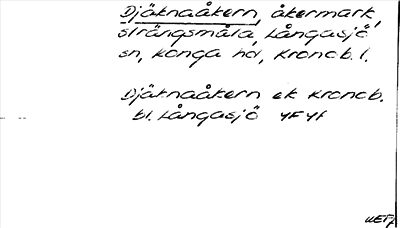 Djäknaåkern, åkermark,
Strängsmåla, Långasjö
sn, Konga hd, Kronob. l.
Djäknaåkern ek Kronob.
bl. Långasjö 4F 4f